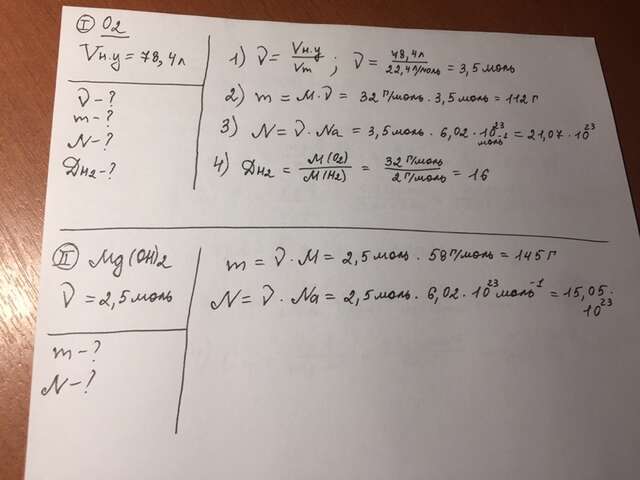 I O2
Vн.у = 78,4л
ν-?
m-?
N-?
Дн2-?
1) ν = Vн.у / Vm ; ν = 78,4л / 22,4л/моль = 3,5 моль
2) m = M·ν = 32 г/моль · 3,5 моль = 112 г
3) N = ν · Na = 3,5 моль · 6,02 · 10^23 моль^-1 = 21,07 · 10^23
4) Дн2 = M(O2) / M(H2) = 32 г/моль / 2 г/моль = 16
II Mg(OH)2
ν = 2,5 моль
m-?
N-?
m = ν · M = 2,5 моль · 58 г/моль = 145 г
N = ν · Na = 2,5 моль · 6,02 · 10^23 моль^-1 = 15,05 ·
10^23